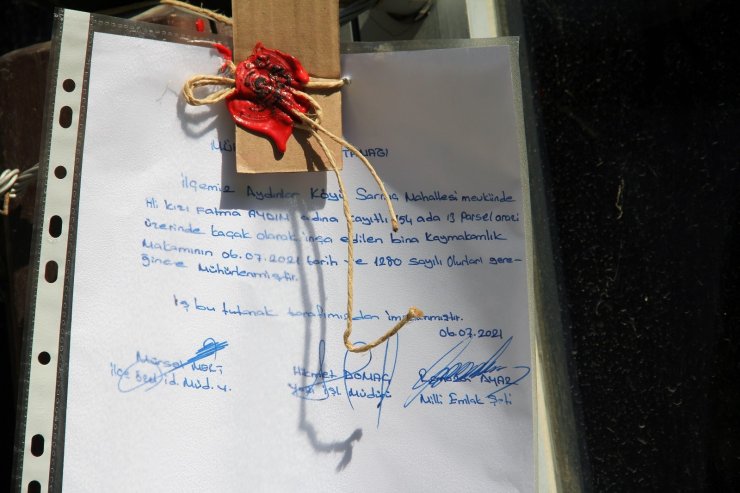 MÜ TANAĞI
İlçemiz Aydınlar Köyü Sarmaş Mahallesi mevkiinde
Ali kızı Fatma AYDIN adına kayıtlı 154 ada 13 Parsel arazi
üzerinde kaçak olarak inşa edilen bina Kaymakamlık
Makamının 06.07.2021 tarih ve 1280 sayılı Olurları gere-
ğince Mühürlenmiştir.
İş bu tutanak tarafımızdan imzalanmıştır.
06.07.2021
Mürsel Hikmet DOMAÇ AYAZ
İlçe Müd. V. Yazı İşl. Müdürü Milli Emlak Şefi